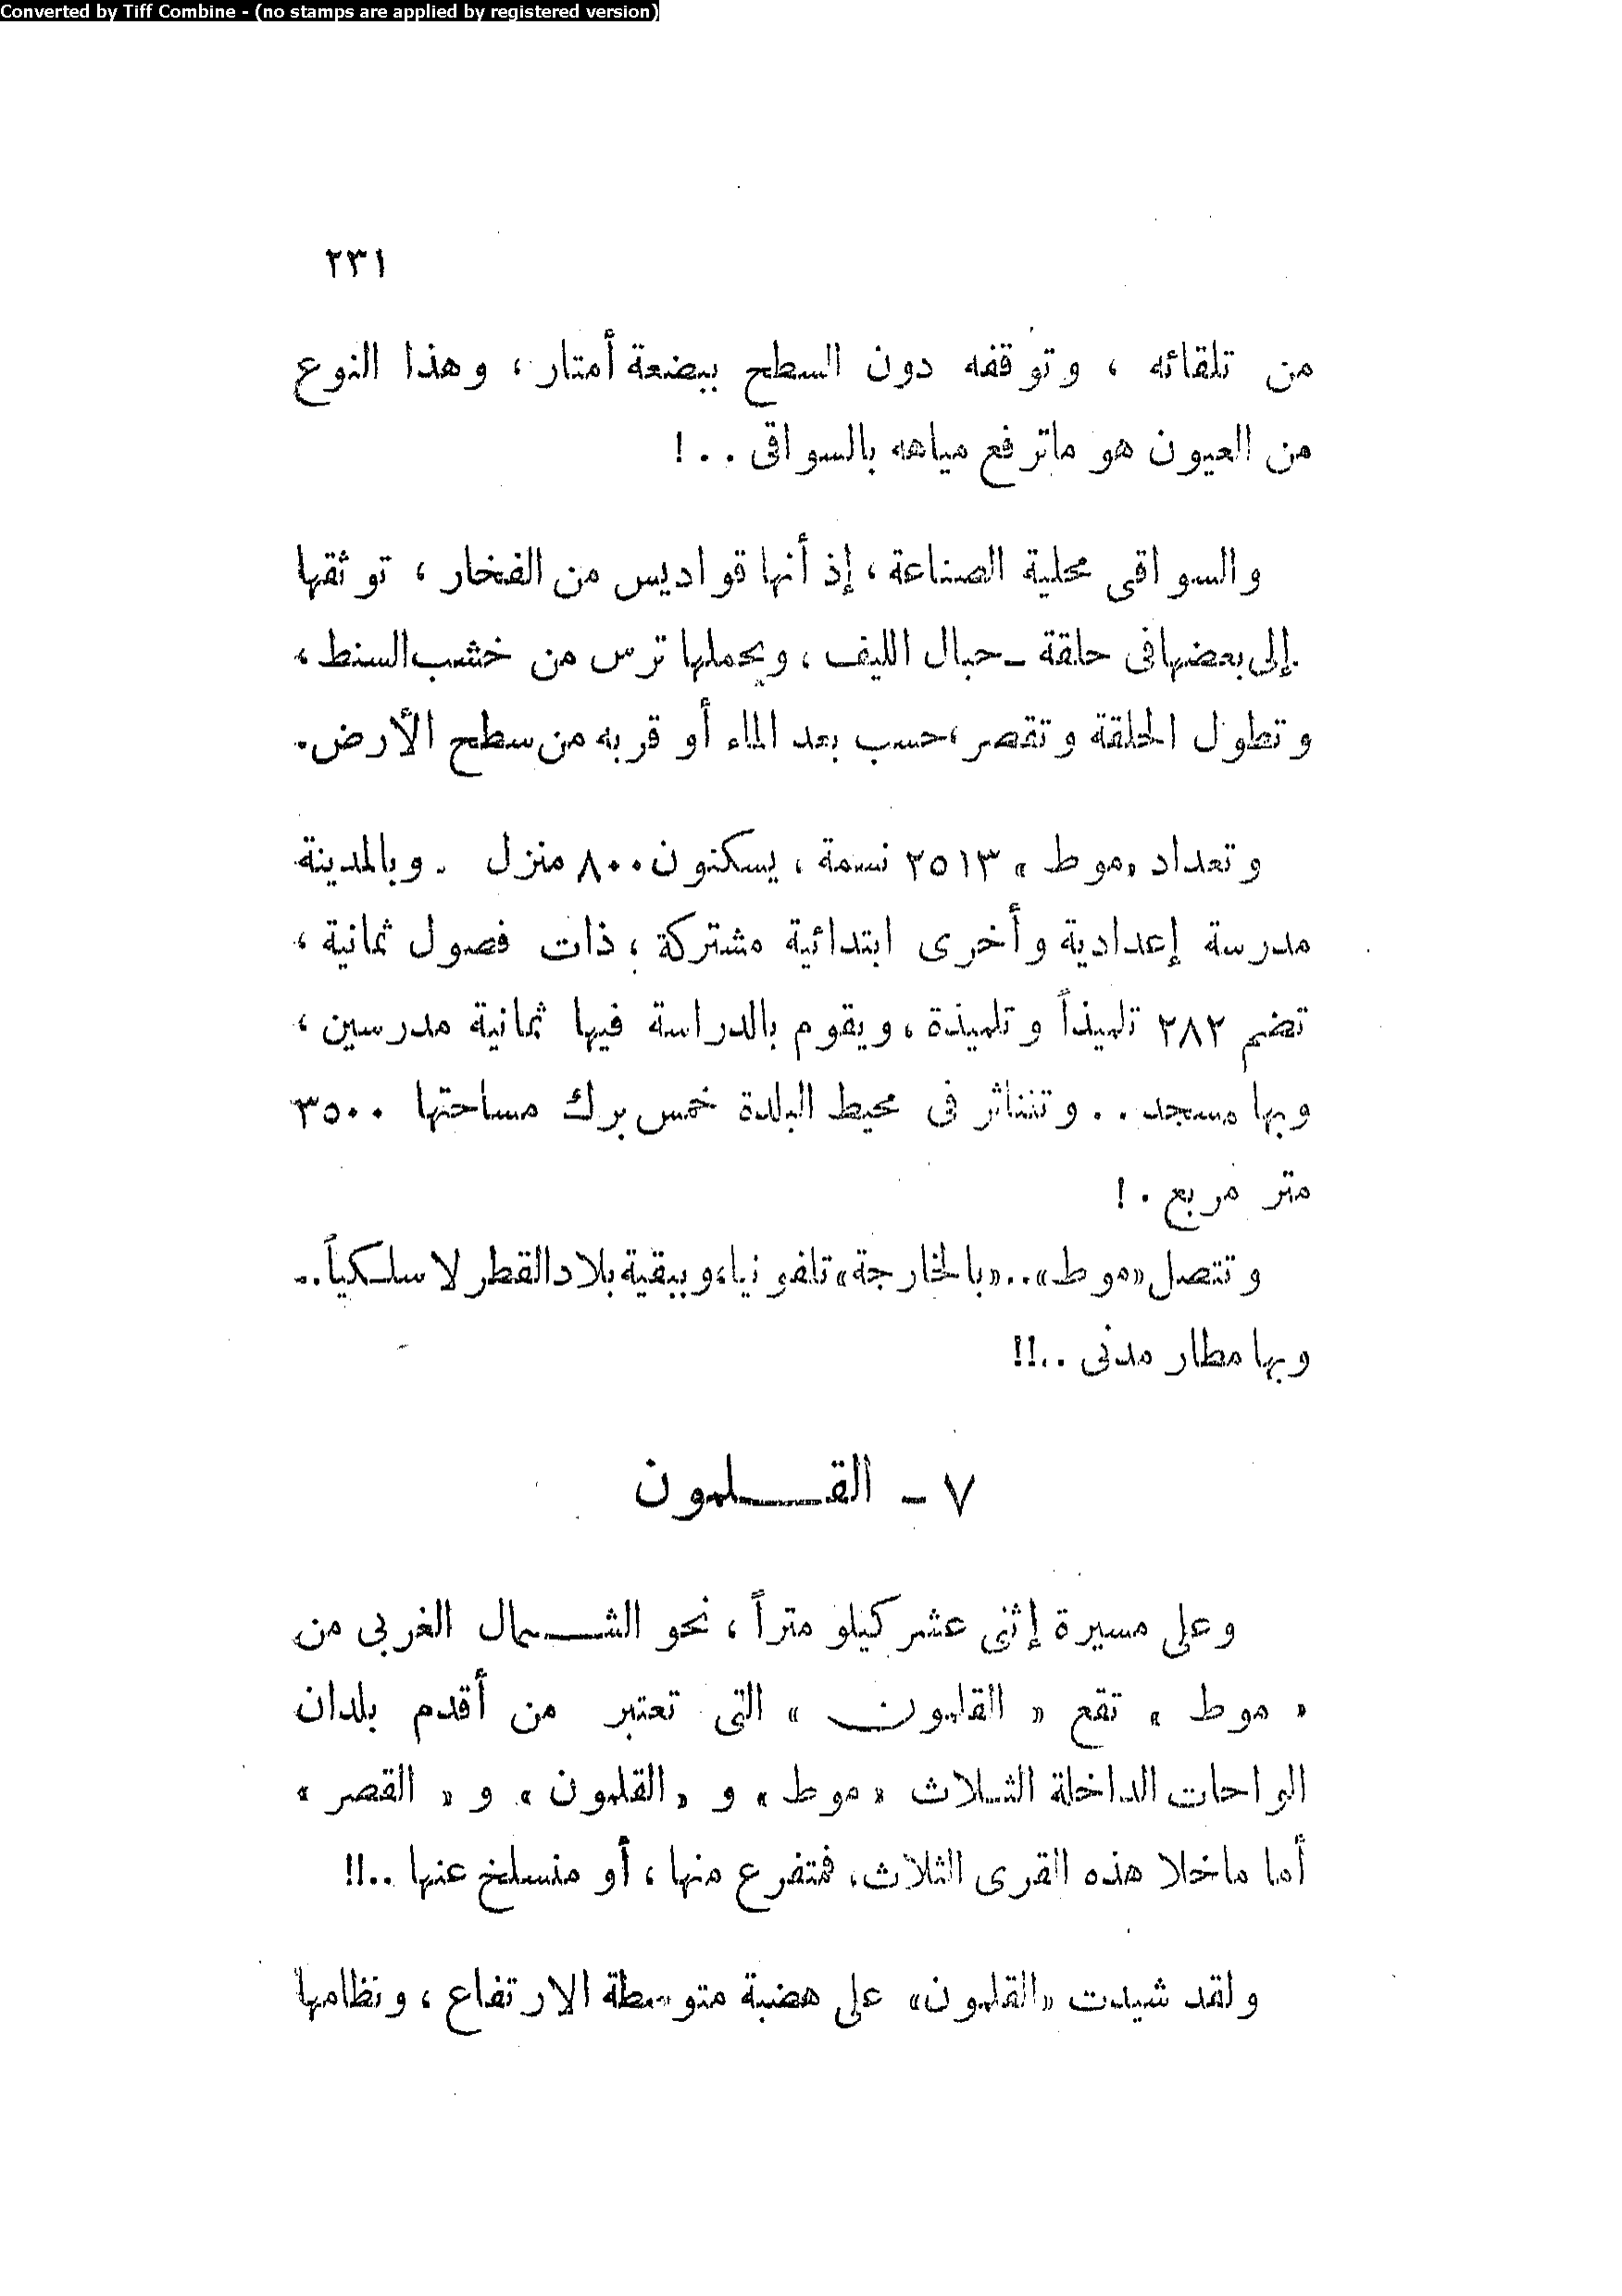 Converted by Tiff Combine - (no stamps are applied by registered version)
٢٣١
من تلقائه ، وتوقفه دون السطح ببضعة أمتار ، وهذا النوع
من العيون هو ماترفع مياهه بالسواقى . . !
والسواقى محلية الصناعة ، إذ أنها قواديس من الفخار ، توثقها
إلى بعضها فى حلقة ـ حبال الليف ، ويحملها ترس من خشب السنط ،
وتطول الحلقة وتقصر ، حسب بعد الماء أو قربه من سطح الأرض .
وتعداد « موط » ٢٥١٣ نسمة ، يسكنون ٨٠٠ منزل . وبالمدينة
مدرسة إعدادية وأخرى ابتدائية مشتركة ، ذات فصول ثمانية ،
تضم ٢٨٢ تلميذاً وتلميذة ، ويقوم بالدراسة فيها ثمانية مدرسين ،
وبها مسجد . . وتتناثر فى محيط البلدة خمس برك مساحتها ٣٥٠٠
متر مربع . !
وتتصل «موط» .. «بالخارجة» تلفونيا، وببقية بلاد القطر لاسلكياً ..
وبها مطار مدنى ..!!
٧ ـ القـلمون
وعلى مسيرة إثنى عشر كيلو متراً ، نحو الشـمال الغربى من
« موط » تقع « القلمون » التى تعتبر من أقدم بلدان
الواحات الداخلة الثـلاث « موط » و « القلمون » و « القصر »
أما ماخلا هذه القرى الثلاث، فمتفرع منها ، أو منسلخ عنها ..!!
ولقد شيدت «القلمون» على هضبة متوسطة الارتفاع ، ونظامها